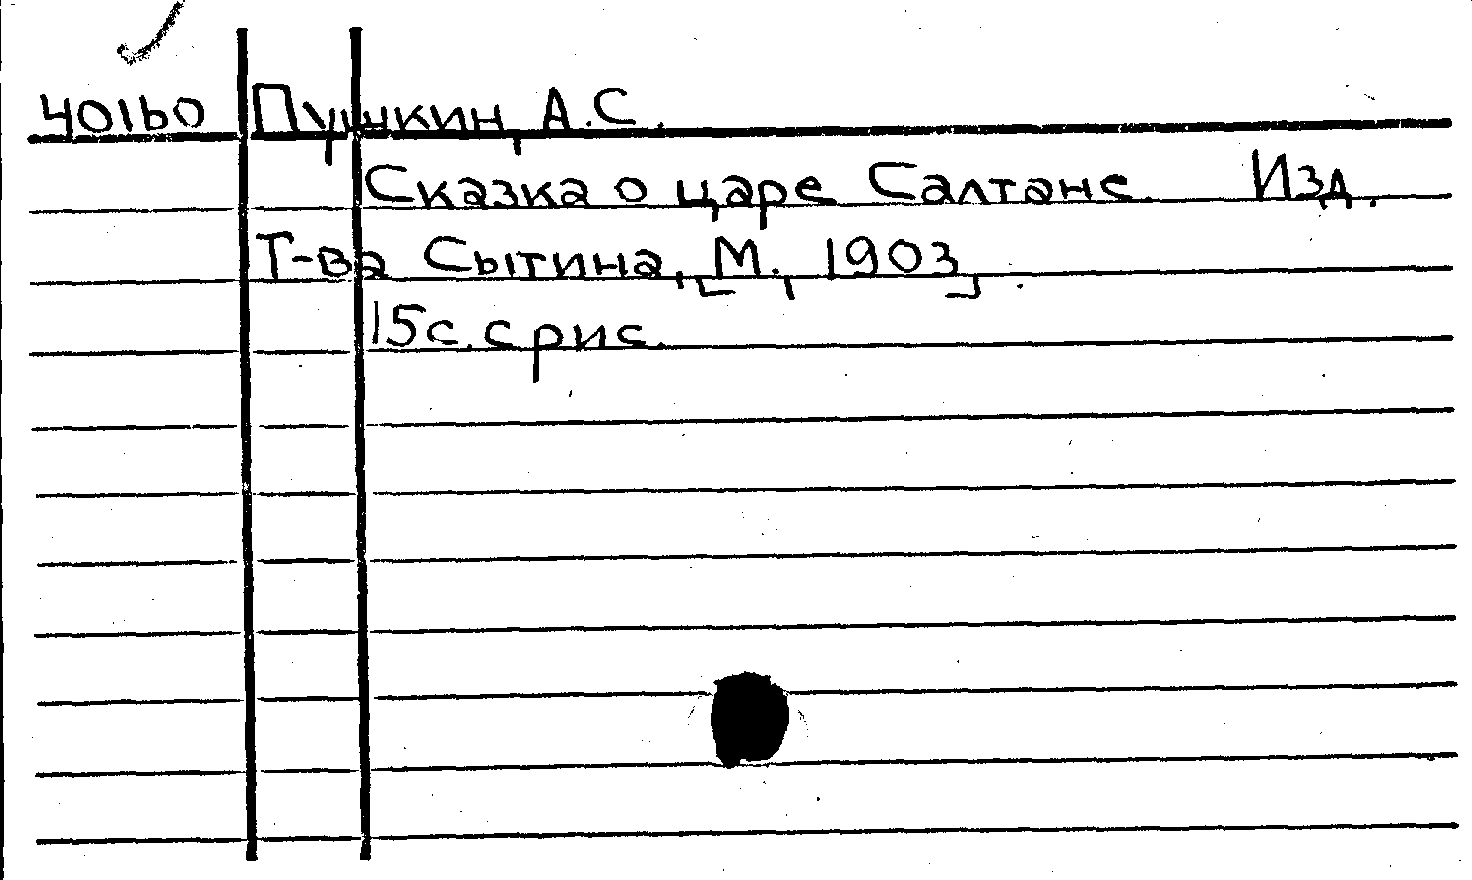 40160 Пушкин, А.С.
Сказка о царе Салтане. Изд.
Т-ва Сытина, [М., 1903].
15с. с рис.